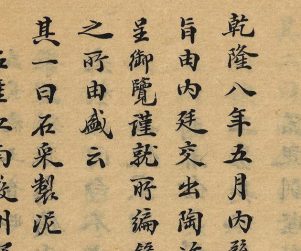 乾隆八年五月內
旨由內廷交出陶冶
呈御覽謹就所編
之所由盛云
其一曰石采製泥
江南